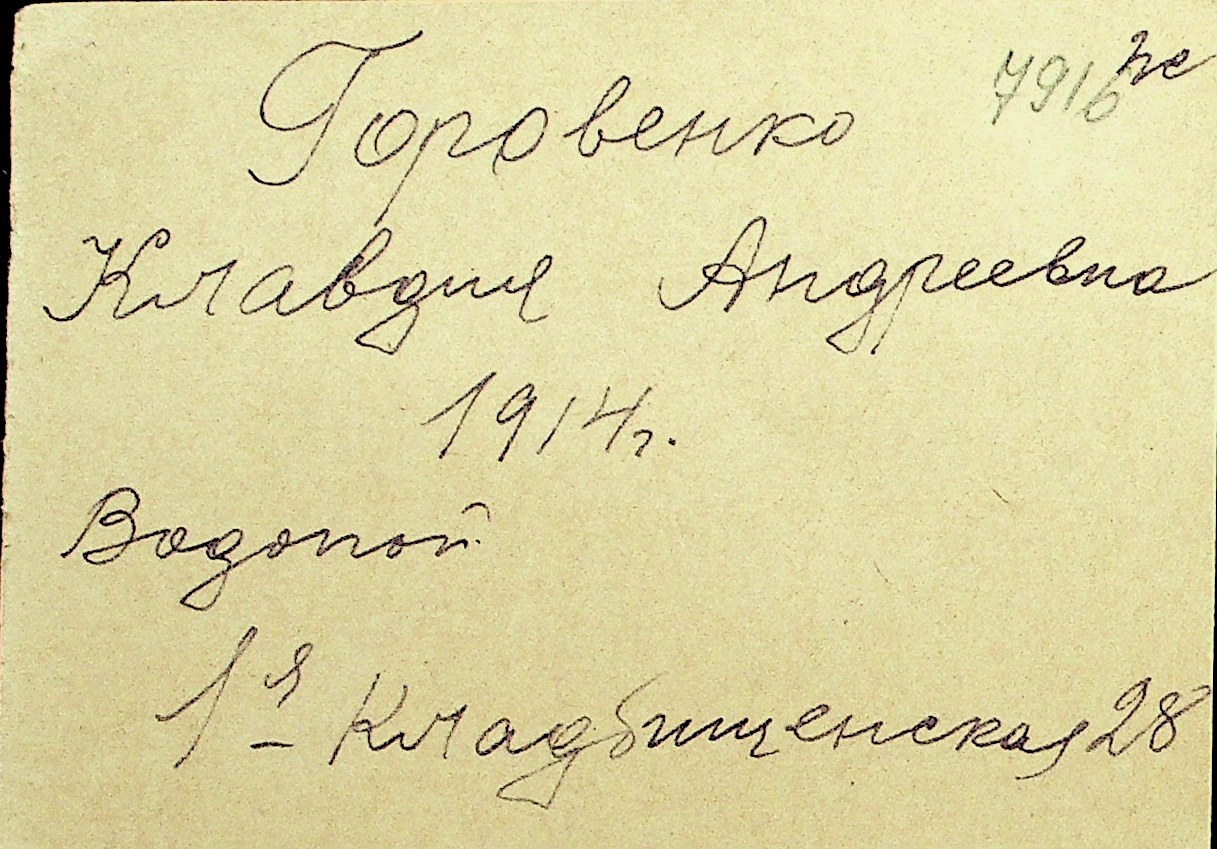 Горовенко 7916
Клавдия Андреевна
1914г.
Водопой
1я Кладбищенская 28